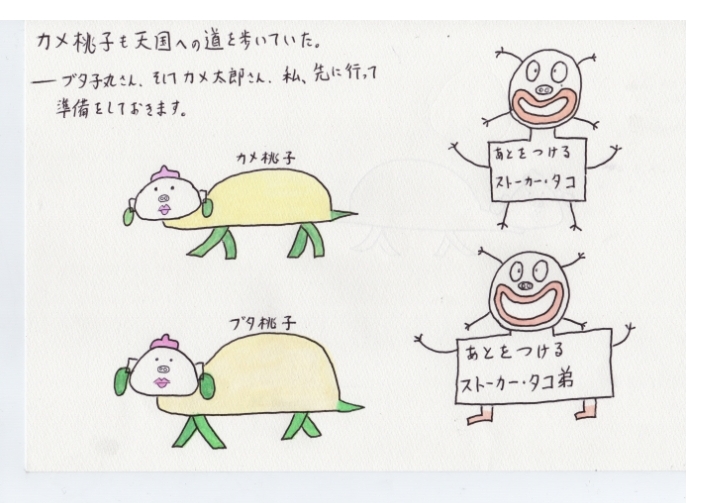 カメ桃子も天国への道を歩いていた。
― ブタ子丸さん、そしてカメ太郎さん、私、先に行って
準備をしておきます。
カメ桃子
あとをつける
ストーカー・タコ
ブタ桃子
あとをつける
ストーカー・タコ弟